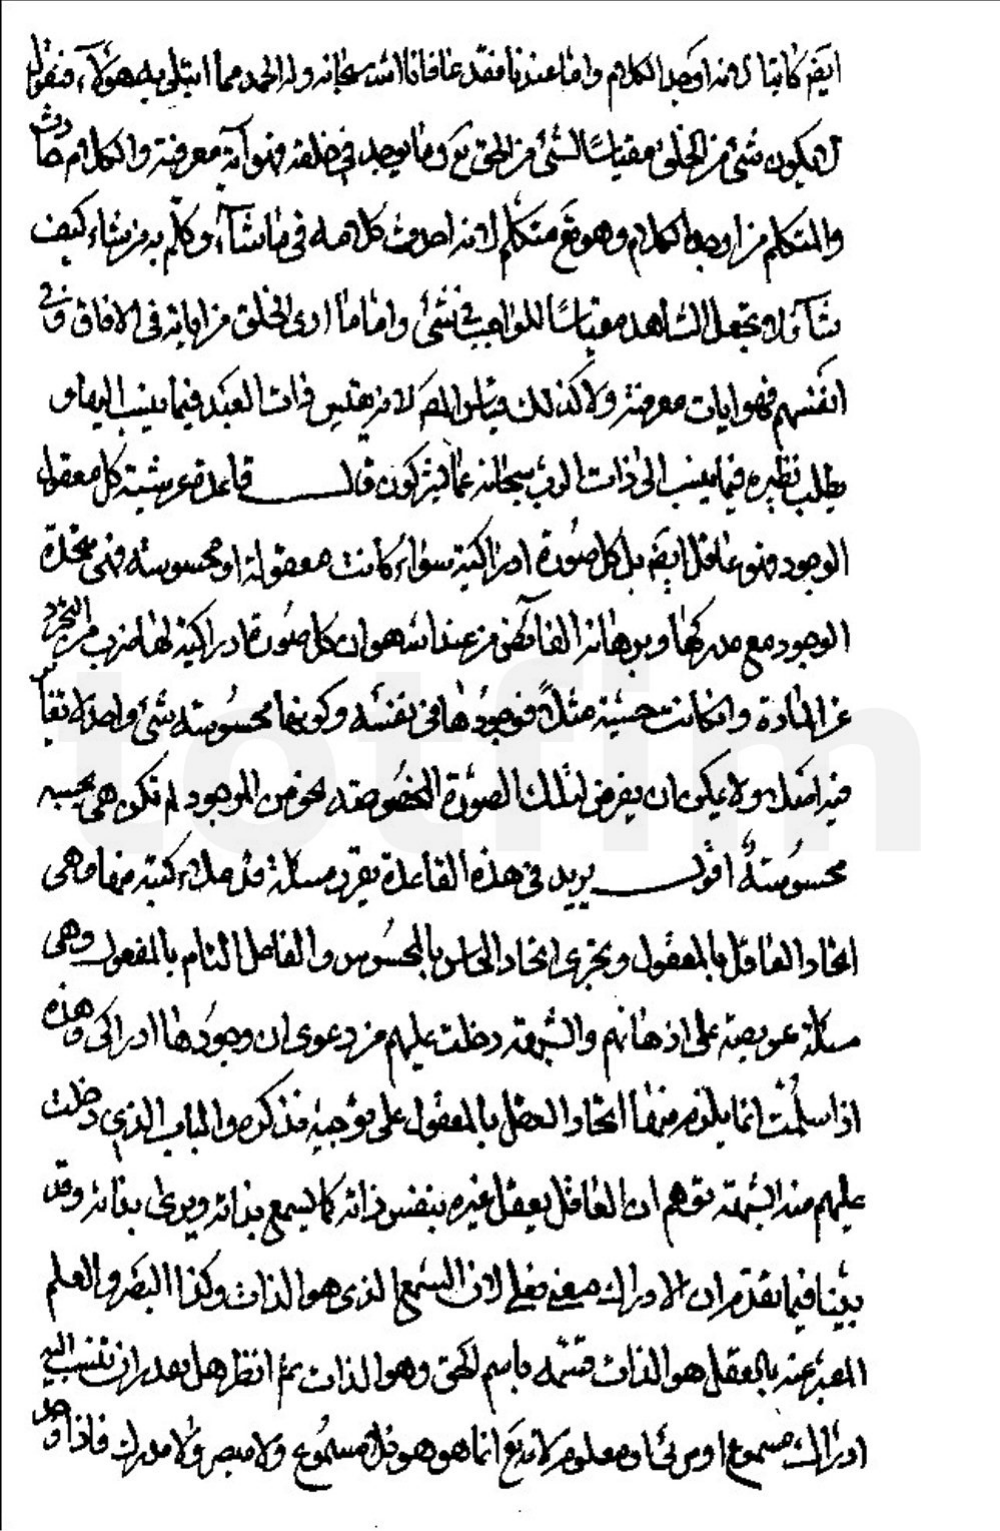 ايضا كاتبا لانه اوجد الكلام واما عندنا فقد عافانا الله سبحانه وله الحمد مما ابتلى به هؤلاء فنقول
لا يكون شئ من الخلق مقياسا لشئ من الحق تع وما يوجد في خلقه فهو آية معرفته والكلام حادث
والمتكلم من اوجد الكلام وهو تع متكلم لانه احدث كلامه في ما شآء وكلّم به من شاء كيف
شآء ولا يجعل الشاهد مقياسا للواجب في شئ واما ما ارى الخلق من اياته في الافاق وفي
انفسهم فهو ايات معرفته ولا كذلك قياس المص لانه يقيس ذات العبد فيما ينسب اليها و
يطلب نظيره فيما ينسب الى ذات الرب سبحانه عما يشركون قال قاعدة عرشية كل معقول
الوجود فهو عاقل ايضا بل كل صورة ادراكية سواء كانت معقولة او محسوسة فهي متحدة
الوجود مع مدركها وبرهانه الفائض من عند الله هو ان كل صورة ادراكية لها ضرب من التجرد
عن المادة وان كانت حسية مثلاً فوجودها في نفسه وكونها محسوسة شئ واحد لا يتغاير
فيه اصلا ولا يمكن ان يفرض لتلك الصورة المخصوصة نحو من الوجود لم تكن هي بحسبه
محسوسة اقول يريد في هذه القاعدة يقرر مسئلة
اتحاد العاقل بالمعقول ويجرى اتحاد الحاس بالمحسوس والفاعل التام بالمفعول وهي
مسئلة عويصة على اذهانهم والشبهة دخلت عليهم من دعوى ان وجودها ادراكى وهذه
اذا سلمت انما يلزم منها اتحاد العقل بالمعقول على توجيه نذكره والباب الذي دخلت
عليهم منه الشبهة توهم ان العاقل يعقل غيره بنفس ذاته كما يسمع بذاته ويرى بذاته وقد
بيّنا فيما تقدم ان الادراك معنى فعلى لان السمع الذى هو الذات وكذا البصر والعلم
المعبّر عنه بالعقل هو الذات فتسمّه باسم الحق وهو الذات ثم انظر هل يقدر ان تنسب اليه
ادراك مسموع او مرئى او معلوم لانه تع انما هو هو فلا مسموع ولا مبصر ولا مدرك فاذا وجد